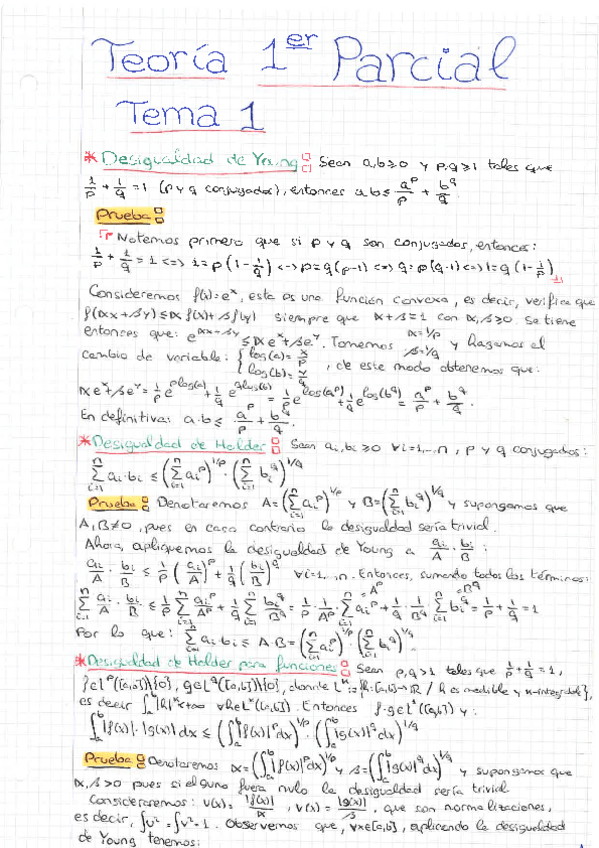 Teoría 1er Parcial
Tema 1
* Desigualdad de Young: Sean a,b≥0 y p,q≥1 tales que
1/p + 1/q = 1 (p y q conjugados), entonces a·b ≤ a^p/p + b^q/q.
Prueba:
Notemos primero que si p y q son conjugados, entonces:
1/p + 1/q = 1 <=> 1 = p(1 - 1/q) <-> p = q(p-1) <=> q = p(q-1) <=> 1 = q(1 - 1/p)
Consideremos f(x)=e^x, esta es una función convexa, es decir, verifica que
f(αx+βy) ≤ αf(x)+βf(y) siempre que α+β=1 con α,β≥0. Se tiene
entonces que: e^(αx+βy) ≤ αe^x+βe^y. Tomemos α=1/p β=1/q y hagamos el
cambio de variable: { log(a) = x/p log(b) = y/q , de este modo obtenemos que:
αe^x+βe^y = 1/p e^(p log(a)) + 1/q e^(q log(b)) = 1/p e^(log(a^p)) + 1/q e^(log(b^q)) = a^p/p + b^q/q.
En definitiva: a·b ≤ a^p/p + b^q/q.
* Desigualdad de Holder: Sean ai,bi ≥0 ∀i=1,..,n, p y q conjugados:
Σ(i=1..n) ai·bi ≤ (Σ(i=1..n) ai^p)^(1/p) · (Σ(i=1..n) bi^q)^(1/q)
Prueba: Denotaremos A=(Σ(i=1..n) ai^p)^(1/p) y B=(Σ(i=1..n) bi^q)^(1/q) y supongamos que
A,B≠0, pues en caso contrario la desigualdad sería trivial.
Ahora, apliquemos la desigualdad de Young a ai/A · bi/B :
ai/A · bi/B ≤ 1/p (ai/A)^p + 1/q (bi/B)^q ∀i=1,..,n. Entonces, sumando todos los términos:
Σ(i=1..n) ai/A · bi/B ≤ 1/p Σ(i=1..n) ai^p/A^p + 1/q Σ(i=1..n) bi^q/B^q = 1/p · 1/A^p · Σ(i=1..n) ai^p (=A^p) + 1/q · 1/B^q Σ(i=1..n) bi^q (=B^q) = 1/p + 1/q = 1
Por lo que: Σ(i=1..n) ai·bi ≤ A·B = (Σ(i=1..n) ai^p)^(1/p) · (Σ(i=1..n) bi^q)^(1/q).
* Desigualdad de Holder para funciones: Sean p,q>1 tales que 1/p + 1/q = 1,
f∈L^p([a,b])\{0}, g∈L^q([a,b])\{0}, donde L^n := {h:[a,b]→ℝ / h es medible y n-integrable},
es decir ∫(a..b)|h|^n<∞ ∀h∈L^n([a,b]). Entonces f·g∈L^1([a,b]) y:
∫(a..b)|f(x)|·|g(x)|dx ≤ (∫(a..b)|f(x)|^p dx)^(1/p) · (∫(a..b)|g(x)|^q dx)^(1/q)
Prueba: Denotaremos α=(∫(a..b)|f(x)|^p dx)^(1/p) y β=(∫(a..b)|g(x)|^q dx)^(1/q) y supongamos que
α,β>0 pues si alguno fuera nulo la desigualdad sería trivial.
Consideraremos: u(x) = |f(x)|/α , v(x) = |g(x)|/β , que son normalizaciones,
es decir, = 1. Observemos que, ∀x∈[a,b], aplicando la desigualdad
de Young tenemos: